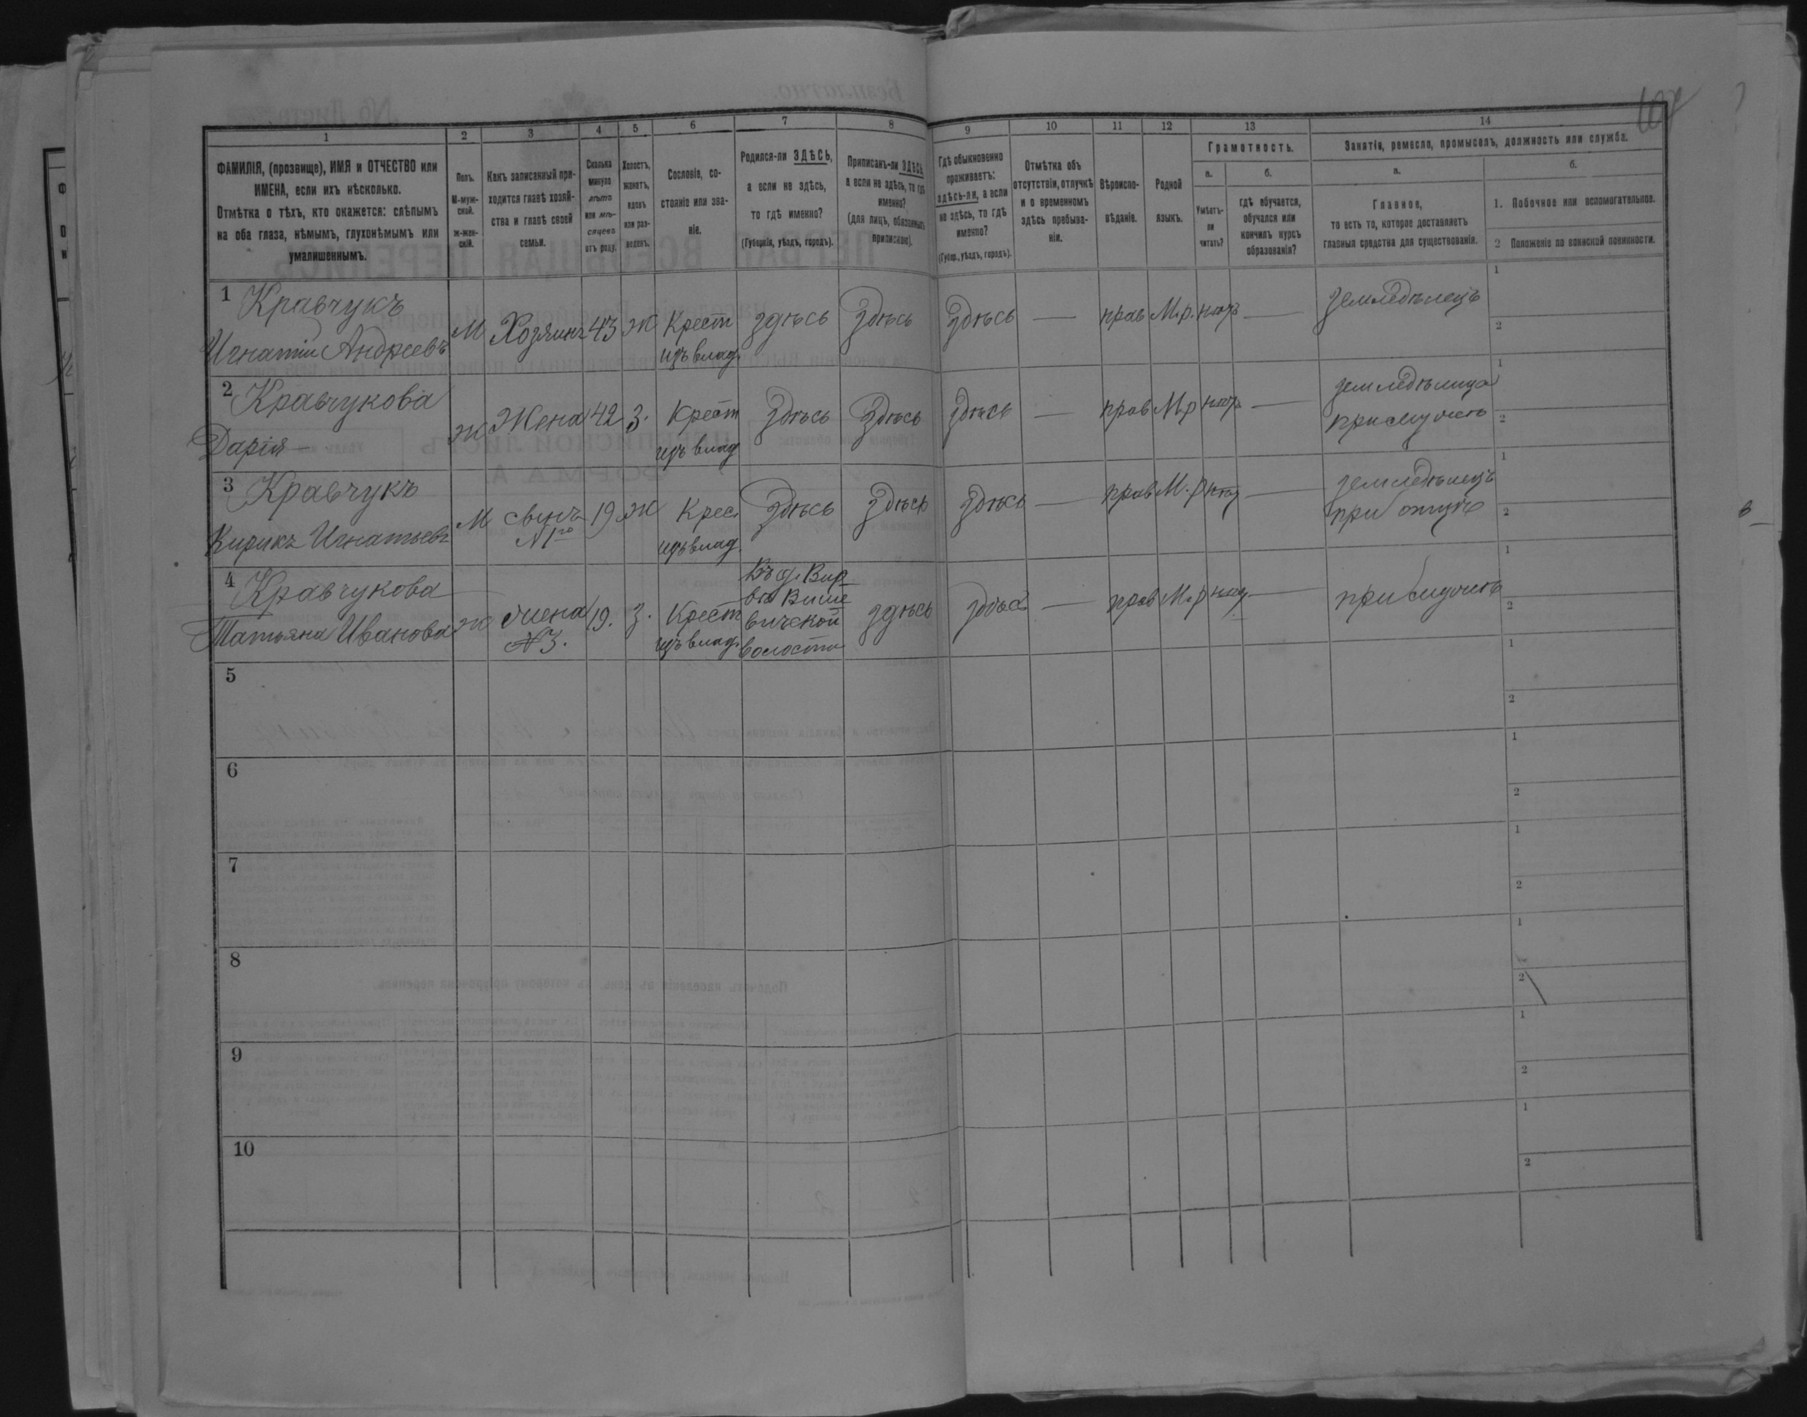 1 2 3 4 5 6 7 8 9 10 11 12 13 14
ФАМИЛІЯ, (прозвище), ИМЯ и ОТЧЕСТВО или
ИМЕНА, если ихъ нѣсколько.
Отмѣтка о тѣхъ, кто окажется: слѣпымъ
на оба глаза, нѣмымъ, глухонѣмымъ или
умалишеннымъ.
Полъ.
М-муж-
ской.
ж-жен-
скій.
Какъ записанный при-
ходится главѣ хозяй-
ства и главѣ своей
семьи.
Сколько
минуло
лѣтъ
или мѣ-
сяцевъ
отъ роду.
Холостъ,
женатъ,
вдовъ
или раз-
веденъ.
Сословіе, со-
стояніе или зва-
ніе.
Родился-ли ЗДѢСЬ,
а если не здѣсь,
то гдѣ именно?
(Губернія, уѣздъ, городъ).
Приписанъ-ли ЗДѢСЬ
а если не здѣсь, то гдѣ
именно?
(для лицъ, обязанныхъ
припискою).
Гдѣ обыкновенно
проживаетъ:
здѣсь-ли, а если
не здѣсь, то гдѣ
именно?
(Губер., уѣздъ, городъ).
Отмѣтка объ
отсутствіи, отлучкѣ
и о временномъ
здѣсь пребыва-
ніи.
Вѣроиспо-
вѣданіе.
Родной
языкъ.
Грамотность.
а.
Умѣетъ-
ли
читать?
б.
гдѣ обучается,
обучался или
кончилъ курсъ
образованія?
Занятіе, ремесло, промыселъ, должность или служба.
а.
Главное,
то есть то, которое доставляетъ
главныя средства для существованія.
б.
1. Побочное или вспомогательное.
2 Положеніе по воинской повинности.
1 Кравчукъ
Игнатій Андреевъ
М Хозяинъ 43 Ж Крест
изъ влад.
здѣсь здѣсь здѣсь — прав М.р. —
земледѣлецъ
1
2
2 Кравчукова
Дарія —
Ж Жена 42 З. Крест
изъ влад
здѣсь здѣсь здѣсь — прав М.р —
земледѣлица
при мужѣ
1
2
3 Кравчукъ
Кирикъ Игнатьевъ
М сынъ
№ 1го
19 Ж Крес.
изъ влад.
здѣсь здѣсь здѣсь — прав М.р —
земледѣлецъ
при отцѣ
1
2
4 Кравчукова
Татьяна Иванова
Ж жена
№ 3.
19. З. Крест
изъ влад.
волости
здѣсь здѣсь — прав М.р —
1
2
5
1
2
6
1
2
7
1
2
8
1
2
9
1
2
10
1
2